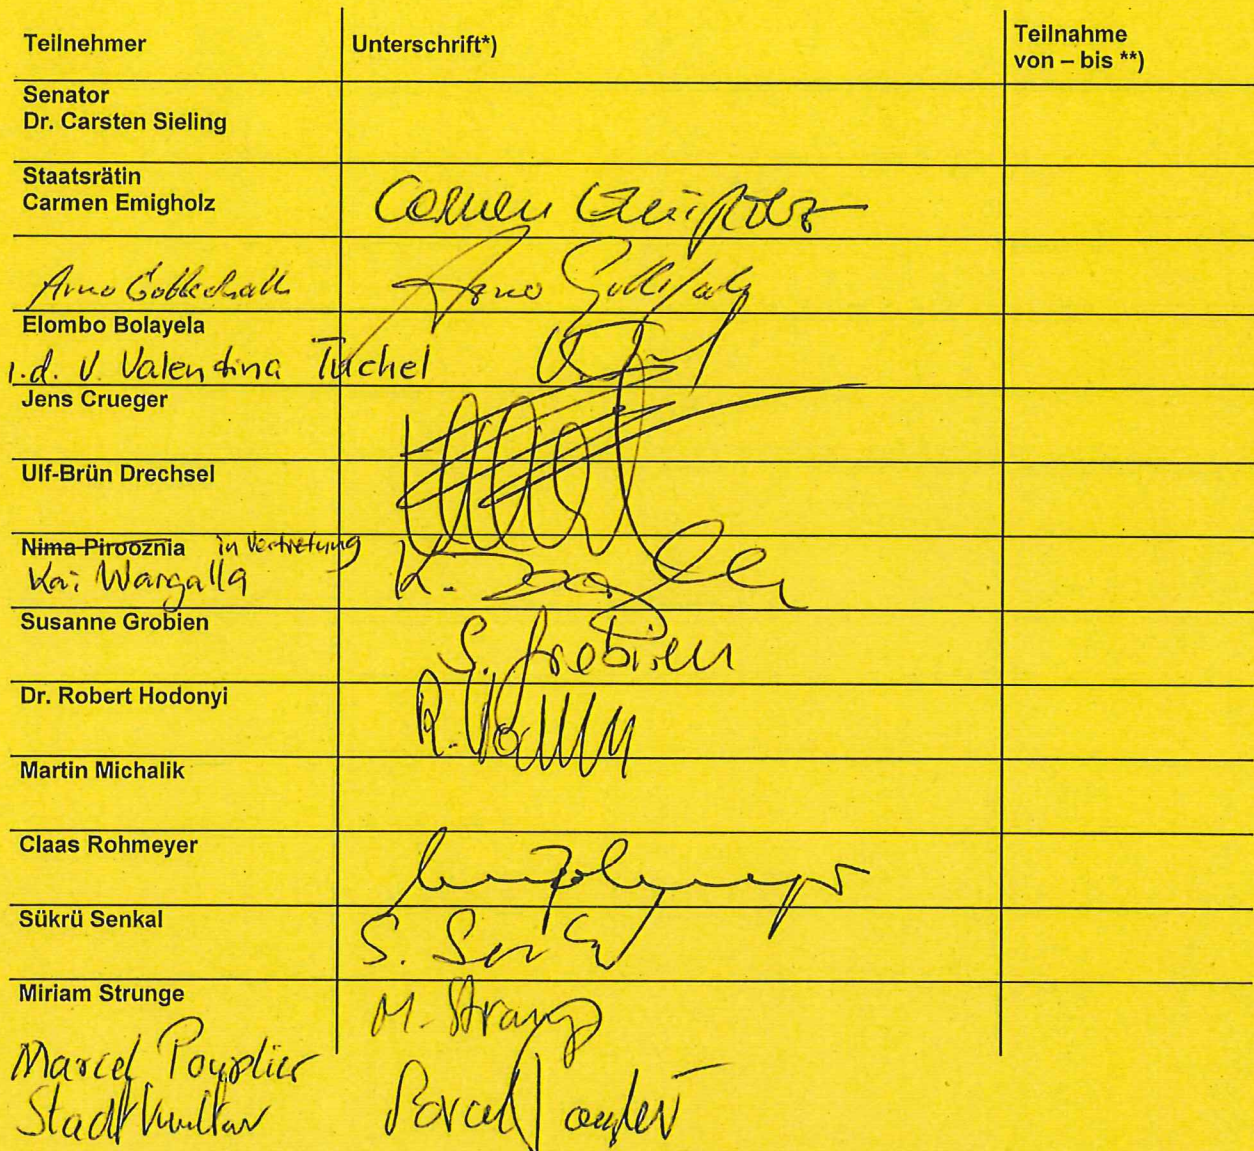 Teilnehmer
Unterschrift*)
Teilnahme
von – bis **)
Senator
Dr. Carsten Sieling
Staatsrätin
Carmen Emigholz
Carmen Emigholz
Arno Gottschalk
Arno Gottschalk
Elombo Bolayela
i.d. V. Valentina Tuchel
Jens Crueger
Ulf-Brün Drechsel
Nima Pirooznia in Vertretung
Kai Wargalla
K.
Susanne Grobien
S. Grobien
Dr. Robert Hodonyi
R. Hodonyi
Martin Michalik
Claas Rohmeyer
Sükrü Senkal
S. Senkal
Miriam Strunge
M. Strunge
Marcel Pouplier
Stadtkultur